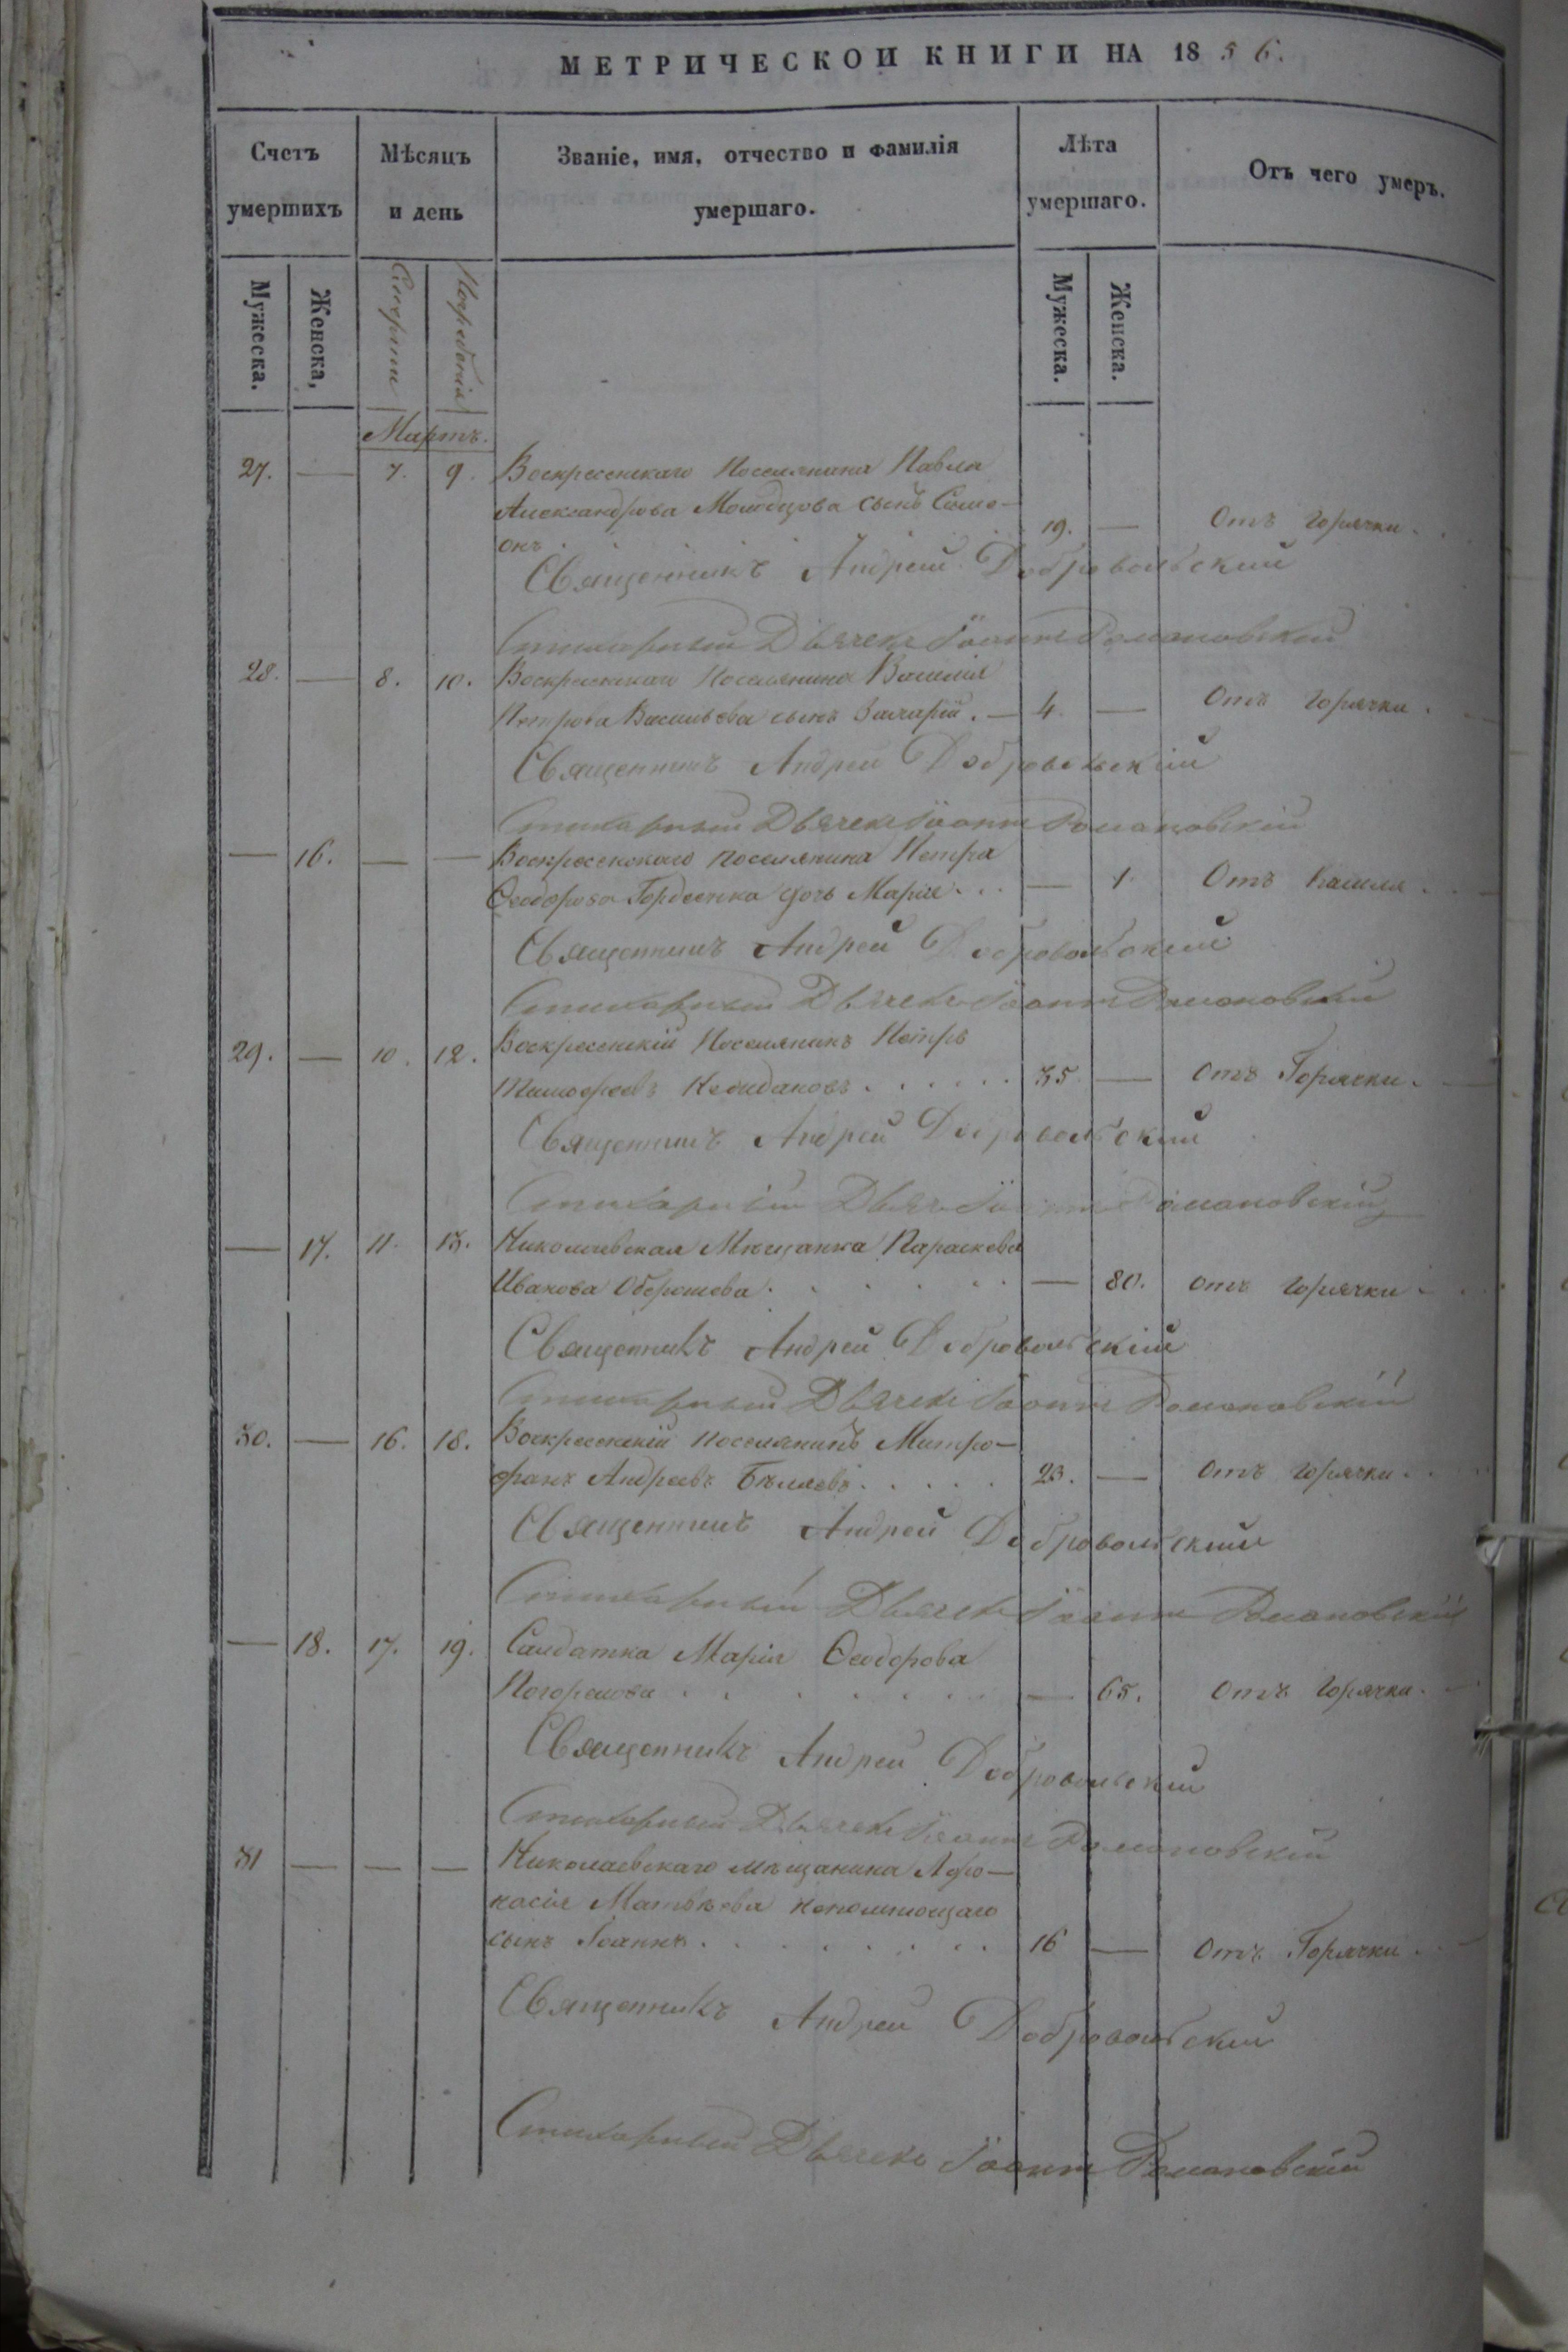 МЕТРИЧЕСКОЙ КНИГИ НА 1856.
Счетъ умершихъ
Мѣсяцъ и день
Званіе, имя, отчество и фамилія умершаго.
Лѣта умершаго.
Отъ чего умеръ.
Мужеска.
Женска,
Смерти
Погребенія
Мужеска.
Женска.
Мартъ.
27. — 7. 9. Воскресенскаго Поселянина Павла
Александрова Молодцова сынъ Симе-
онъ. 19. — Отъ горячки.
Священникъ Андрей Добровольский
Стихарный Дьячекъ Іоаннъ Романовскій
28. — 8. 10. Воскресенскаго Поселянина Василія
Петрова Васильева сынъ Захарій. — 4. — Отъ горячки.
Священникъ Андрей Добровольскій
Стихарный Дьячекъ Іоаннъ Романовскій
— 16. — — Воскресенскаго поселянина Петра
Ѳеодорова Гордеенка дочь Марія... — 1. Отъ кашля.
Священникъ Андрей Добровольский
Стихарный Дьячекъ Іоаннъ Романовскій
29. — 10. 12. Воскресенскій Поселянинъ Петръ
Тимоѳеевъ 35. — Отъ Горячки.
Священникъ Андрей Добровольский
Стихарный Дьяч Іоаннъ Романовскій
— 17. 11. 13. Николаевская Мѣщанка Параскева
Иванова — 80. отъ горячки
Священникъ Андрей Добровольскій
Стихарный Дьячекъ Іоаннъ Романовскій
30. — 16. 18. Воскресенскій поселянинъ Митро-
фанъ Андреевъ Бѣляевъ. 23. — Отъ горячки.
Священникъ Андрей Добровольский
Стихарный Дьячекъ Іоаннъ Романовскій
— 18. 17. 19. Салдатка Марія Ѳеодорова
Погорелова — 65. Отъ горячки.
Священникъ Андрей Добровольский
Стихарный Дьячекъ Іоаннъ Романовскій
31 — — — Николаевскаго мѣщанина Афо-
насія Матвѣева Непомнющаго
сынъ Іоаннъ. 16 — Отъ Горячки.
Священникъ Андрей Добровольский
Стихарный Дьячекъ Іоаннъ Романовскій